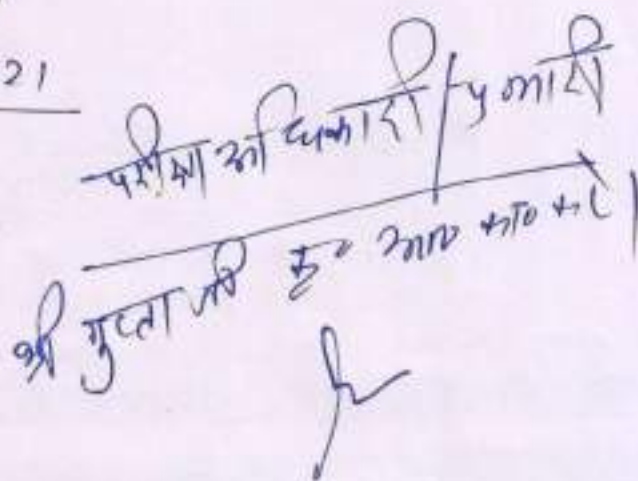 21
परीक्षा अधिकारी / प्रभारी
श्री गुप्ता जी कृ० आ० का० करें।